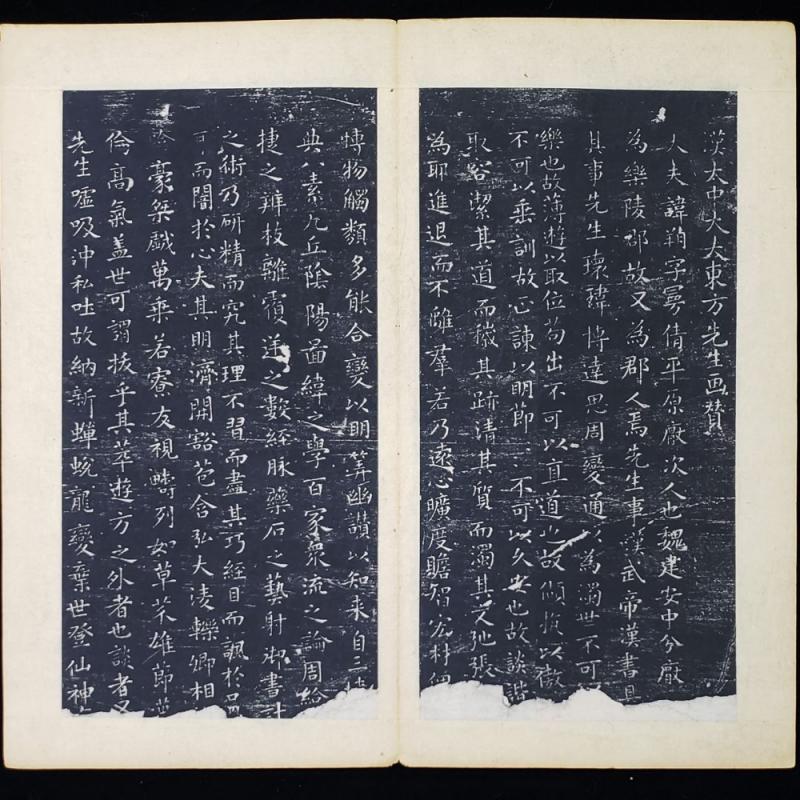 漢大中大夫東方先生画贊
大夫諱朔字曼倩平原厭次人也魏建安中分厭
為樂陵郡故又為郡人焉先生事漢武帝漢書具
其事先生瓌諱博達思周變通以為濁世不可
樂也故薄遊以取位苟出不可以直道也故傾抗以傲
不可以垂訓故正諫以明節不可以久安也故談諧
取容潔其道而穢其跡清其質而濁其文弛張
為耶進退而不離羣若乃遠心曠度贍智宏材
博物觸類多能合變以明筭幽讃以知来自三墳
典八素九丘陰陽啚緯之學百家衆流之論周給
捷之辨枝離覆逆之數經脉藥石之藝射御書計
之術乃研精而究其理不習而盡其巧經目而諷於口
而闇於心夫其明濟開豁苞含弘大淩轢卿相
豪桀戲萬乘若寮友視疇列如草芥雄節
倫高氣盖世可謂拔乎其萃遊方之外者也談者又
先生噓吸沖和吐故納新蟬蛻龍變棄世登仙神